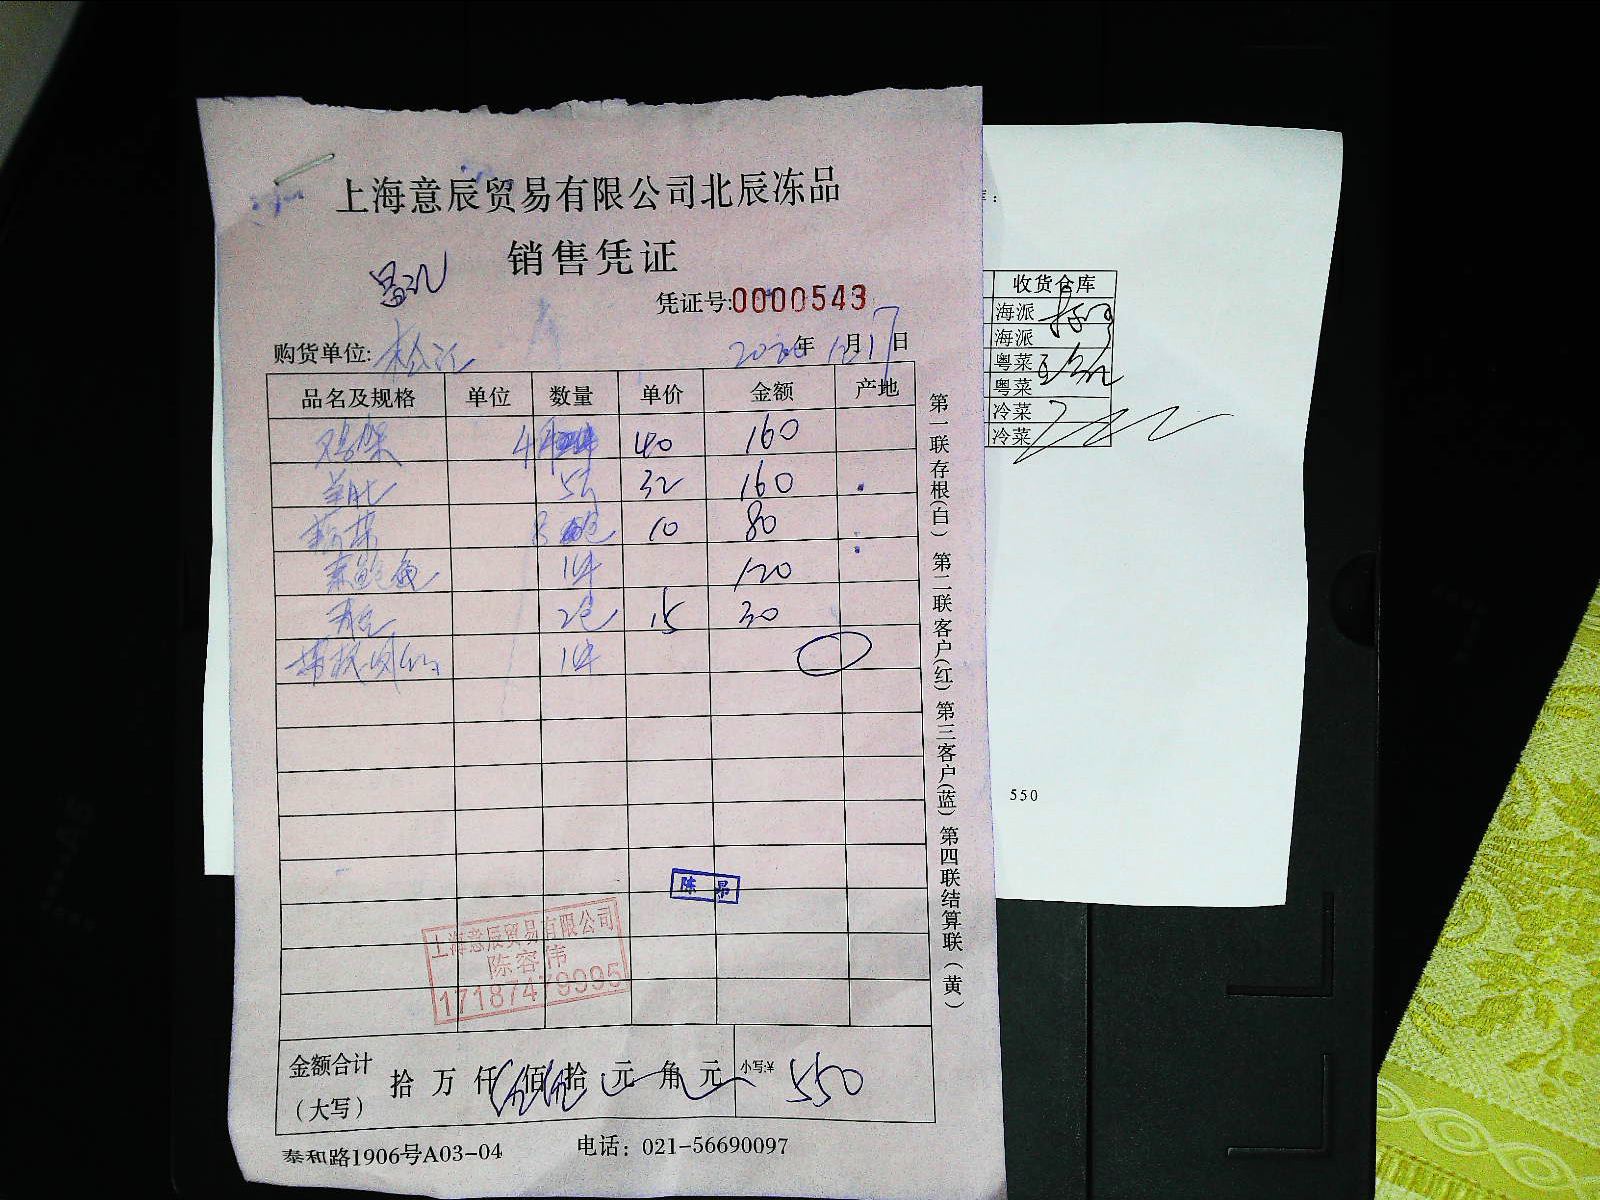 上海意辰贸易有限公司北辰冻品
销售凭证
凭证号:0000543
购货单位: 松江 年 12月17日
品名及规格 单位 数量 单价 金额 产地
鸡架 4件 40 160
羊肚 32 160
10 80
素鲍鱼 1件 120
2包 15 30
1件
陈 昂
上海意辰贸易有限公司
陈容伟
17187479995
金额合计
(大写)
拾 万 仟 伍佰 伍拾 元 角 元 小写:¥ 550
泰和路1906号A03-04 电话：021-56690097
第一联存根(白) 第二联客户(红) 第三客户(蓝) 第四联结算联(黄)
收货仓库
海派
海派
粤菜
粤菜
冷菜
冷菜
550